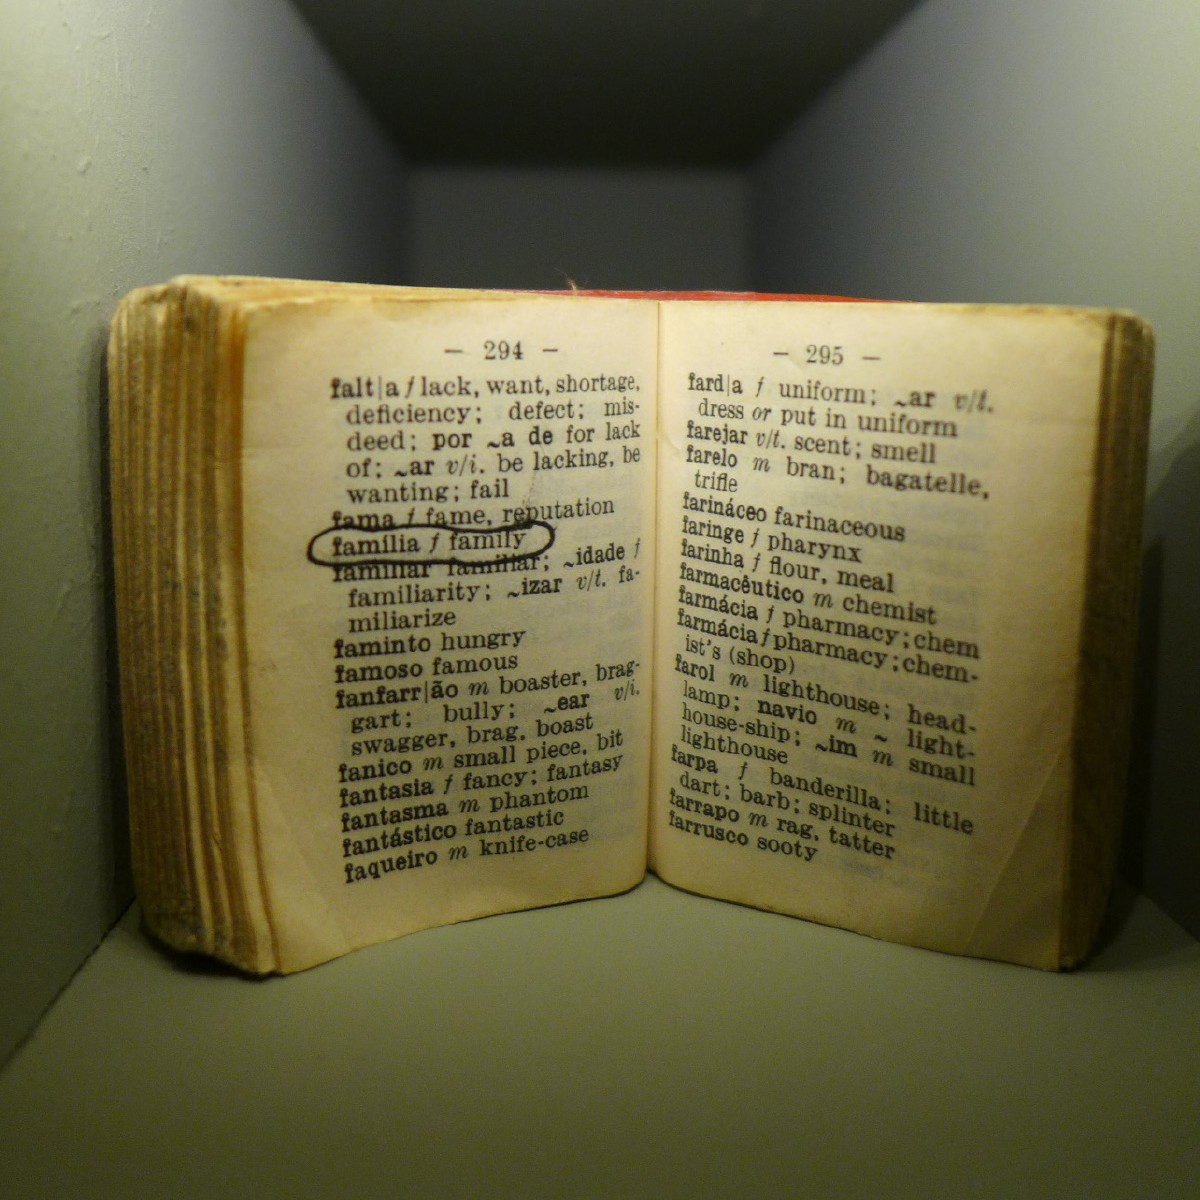 — 294 —
falt|a f lack, want, shortage,
deficiency; defect; mis-
deed; por ~a de for lack
of; ~ar v/i. be lacking, be
wanting; fail
fama f fame, reputation
família f family
familiar familiar; ~idade f
familiarity; ~izar v/t. fa-
miliarize
faminto hungry
famoso famous
fanfarr|ão m boaster, brag-
gart; bully; ~ear v/i.
swagger, brag, boast
fanico m small piece, bit
fantasia f fancy; fantasy
fantasma m phantom
fantástico fantastic
faqueiro m knife-case
— 295 —
fard|a f uniform; ~ar v/t.
dress or put in uniform
farejar v/t. scent; smell
farelo m bran; bagatelle,
trifle
farináceo farinaceous
faringe f pharynx
farinha f flour, meal
farmacêutico m chemist
farmácia f pharmacy; chem
farmácia f pharmacy; chem-
ist's (shop)
farol m lighthouse; head-
lamp; navio m ~ light-
house-ship; ~im m small
lighthouse
farpa f banderilla; little
dart; barb; splinter
farrapo m rag, tatter
farrusco sooty